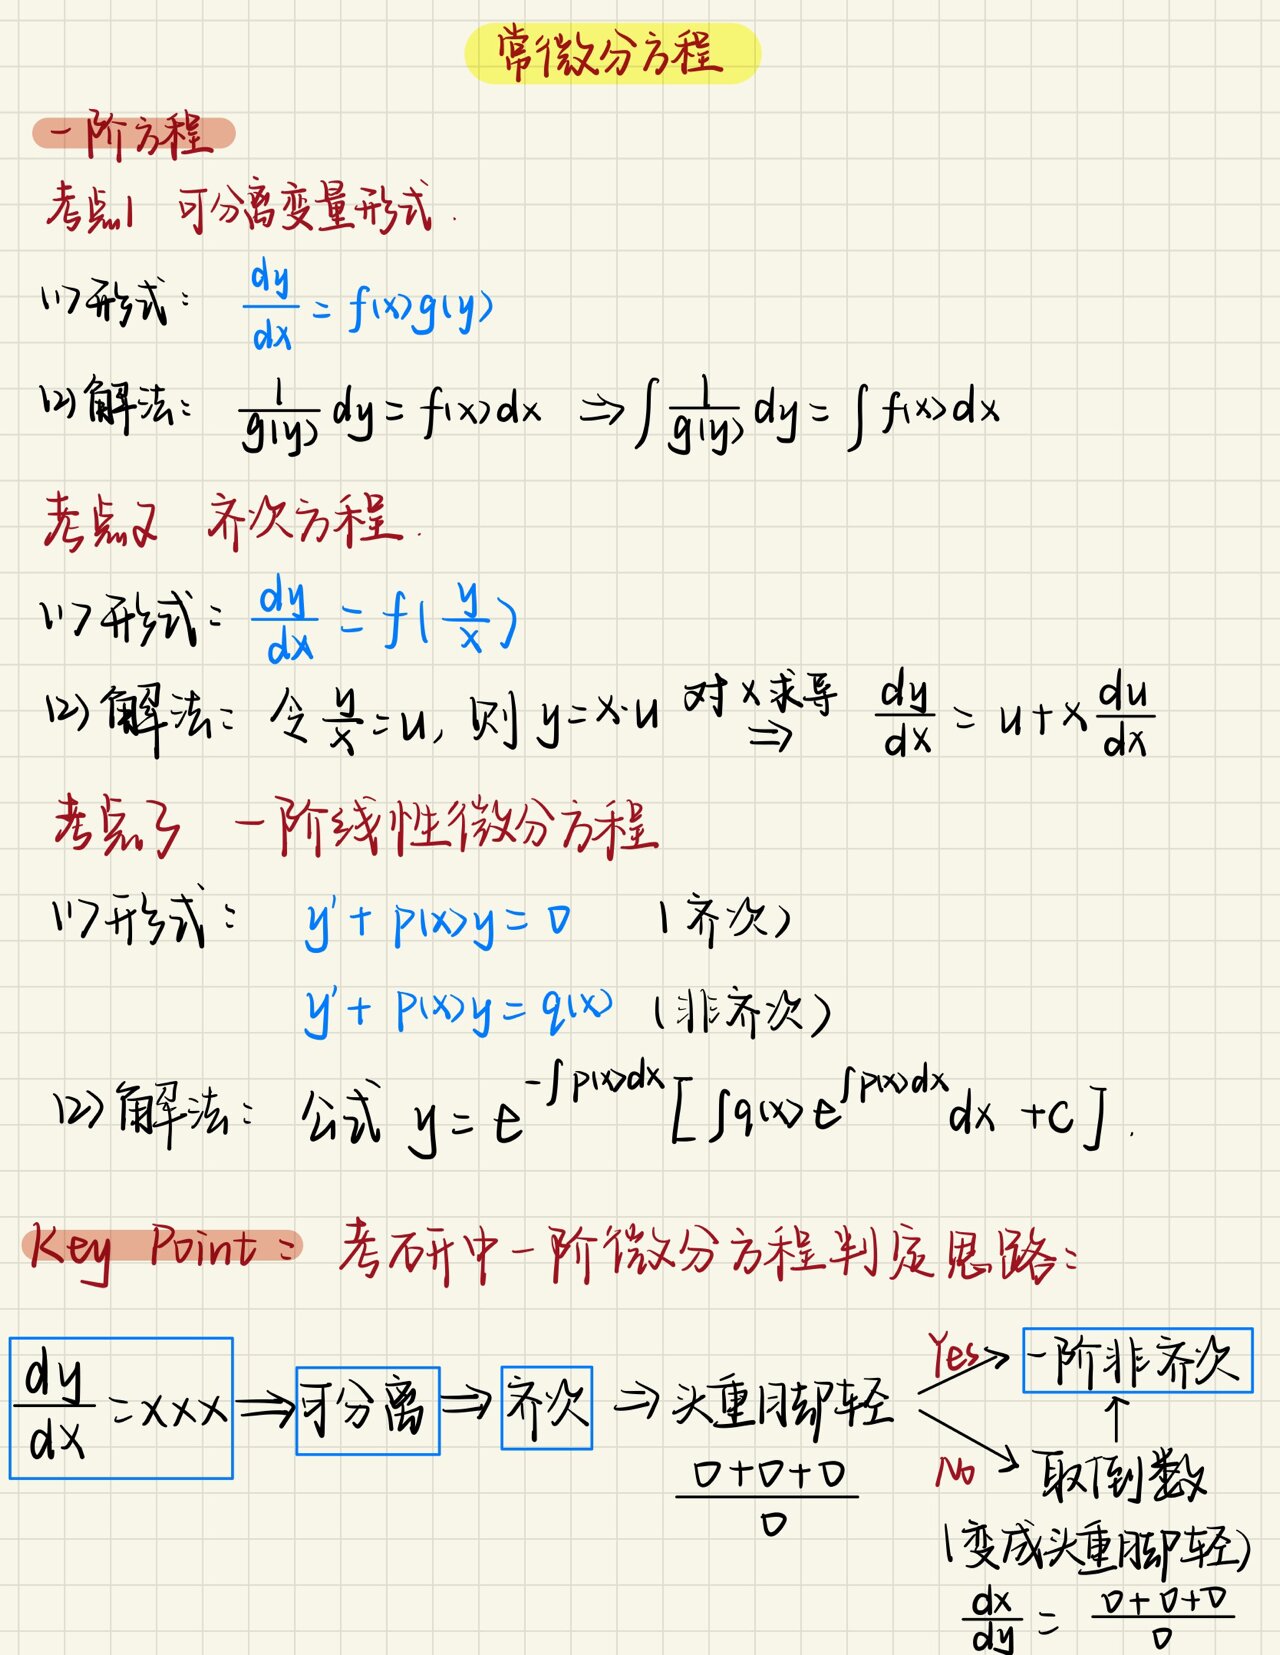 常微分方程
一阶方程
考点1 可分离变量形式.
(1)形式: dy/dx = f(x)g(y)
(2)解法: 1/g(y) dy = f(x)dx ⇒ ∫ 1/g(y) dy = ∫ f(x)dx
考点2 齐次方程.
(1)形式: dy/dx = f(y/x)
(2)解法: 令 y/x = u, 则 y = x·u 对x求导 ⇒ dy/dx = u + x du/dx
考点3 一阶线性微分方程
(1)形式: y' + p(x)y = 0 (齐次)
y' + p(x)y = q(x) (非齐次)
(2)解法: 公式 y = e^{-∫p(x)dx} [∫q(x)e^{∫p(x)dx}dx + C].
Key Point: 考研中一阶微分方程判定思路:
dy/dx = xxx ⇒ 可分离 ⇒ 齐次 ⇒ 头重脚轻 (□+□+□)/□
Yes → 一阶非齐次
No → 取倒数 ↑
(变成头重脚轻)
dx/dy = (□+□+□)/□